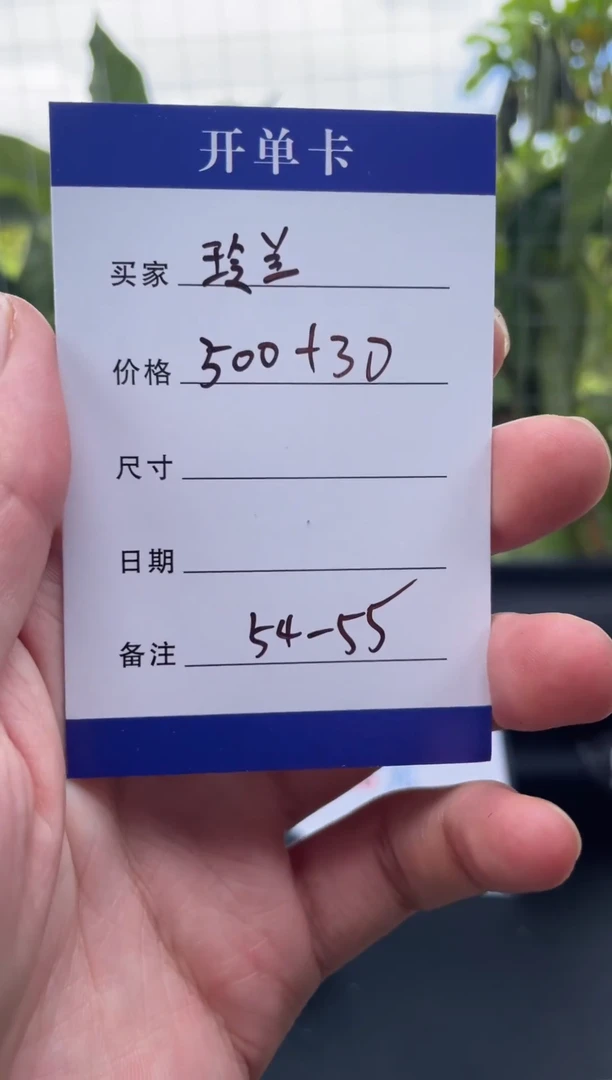 开单卡
买家 玲兰
价格 500+30
尺寸
日期
备注 54-55